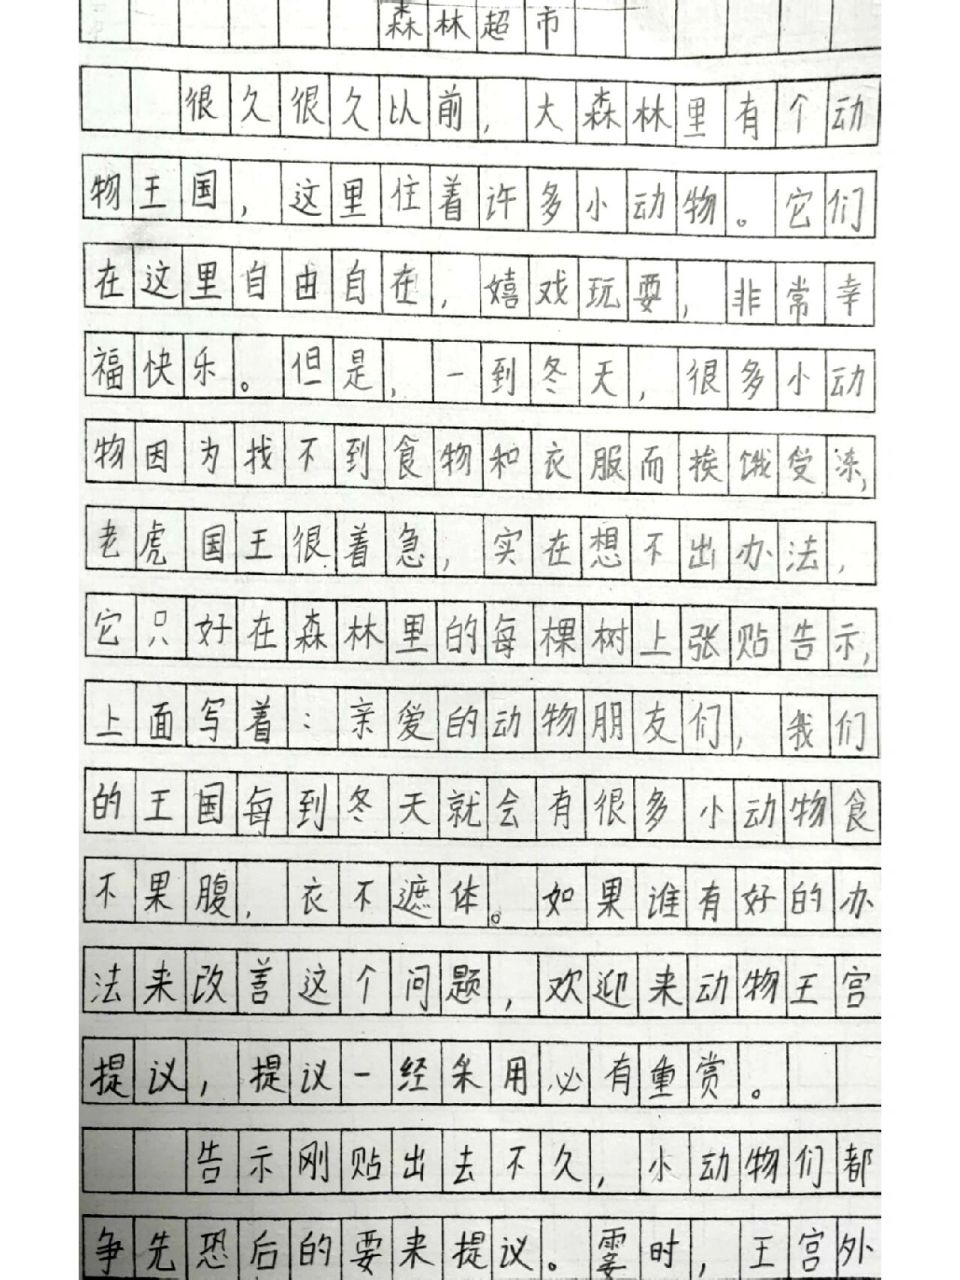 森林超市
很久很久以前,大森林里有个动
物王国,这里住着许多小动物。它们
在这里自由自在,嬉戏玩耍,非常幸
福快乐。但是,一到冬天,很多小动
物因为找不到食物和衣服而挨饿受冻,
老虎国王很着急,实在想不出办法,
它只好在森林里的每棵树上张贴告示,
上面写着:亲爱的动物朋友们,我们
的王国每到冬天就会有很多小动物食
不果腹,衣不遮体。如果谁有好的办
法来改善这个问题,欢迎来动物王宫
提议,提议一经采用必有重赏。
告示刚贴出去不久,小动物们都
争先恐后的要来提议。霎时,王宫外